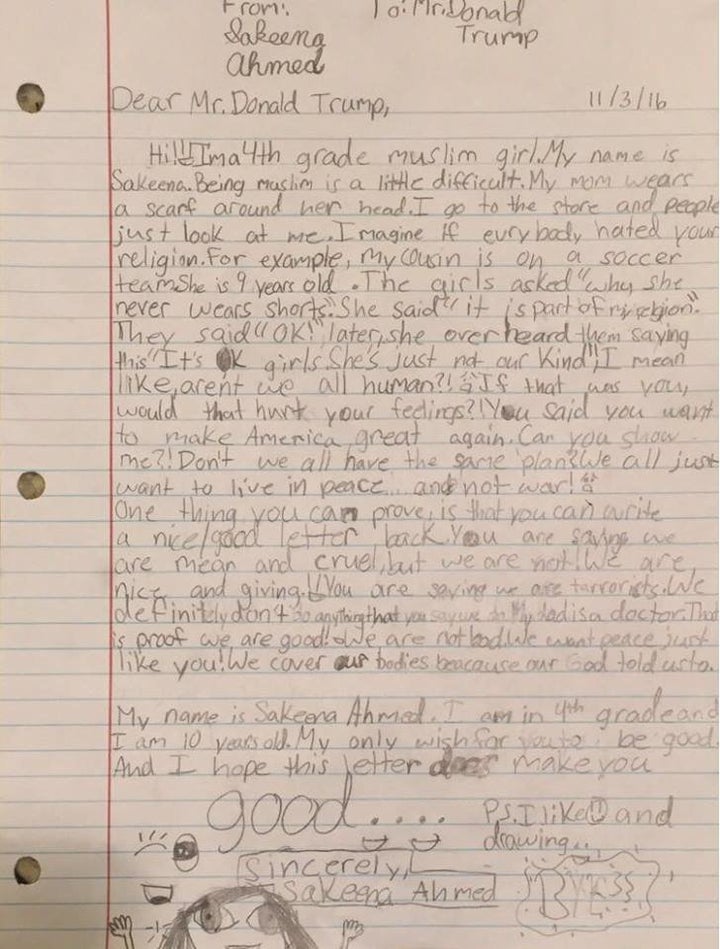 From: To: Mr. Donald
Sakeena Trump
Ahmed
Dear Mr. Donald Trump, 11/3/16
Hi!! I'm a 4th grade muslim girl. My name is
Sakeena. Being muslim is a little difficult. My mom wears
a scarf around her head. I go to the store and people
just look at me. Imagine if eurybody hated your
religion. For example, my cousin is on a soccer
team. She is 9 years old. The girls asked "why she
never wears shorts". She said "it is part of my religion".
They said "OK!" later, she over heard them saying
this "It's OK girls. She's just not our kind", I mean
like, arent we all human?! If that was you,
would that hurt your feelings?! You said you want
to make America great again. Can you show
me?! Don't we all have the same plan? We all just
want to live in peace... and not war!
One thing you can prove, is that you can write
a nice/good letter back. You are saying we
are mean and cruel, but we are not! We are
nice and giving.!! You are saying we are tarrorists. We
definitely don't do anything that you say we do. My dad is a doctor. That
is proof we are good! We are not bad. We want peace just
like you! We cover our bodies beacause our God told us to.
My name is Sakeena Ahmed. I am in 4th grade and
I am 10 years old. My only wish for you to be good.
And I hope this letter does make you
good.... P.S. I like and
drawing..
Sincerely,
Sakeena Ahmed